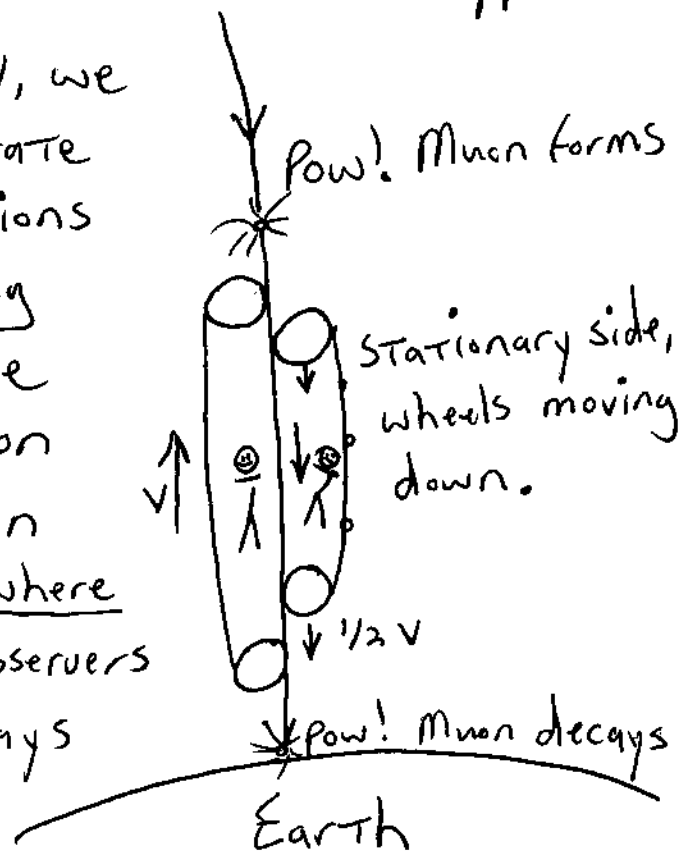 , we
rate
ions
g
e
on
n
where
servers
ays
Pow! Muon forms
Stationary side,
wheels moving
down.
V
1/2 V
Pow! Muon decays
Earth